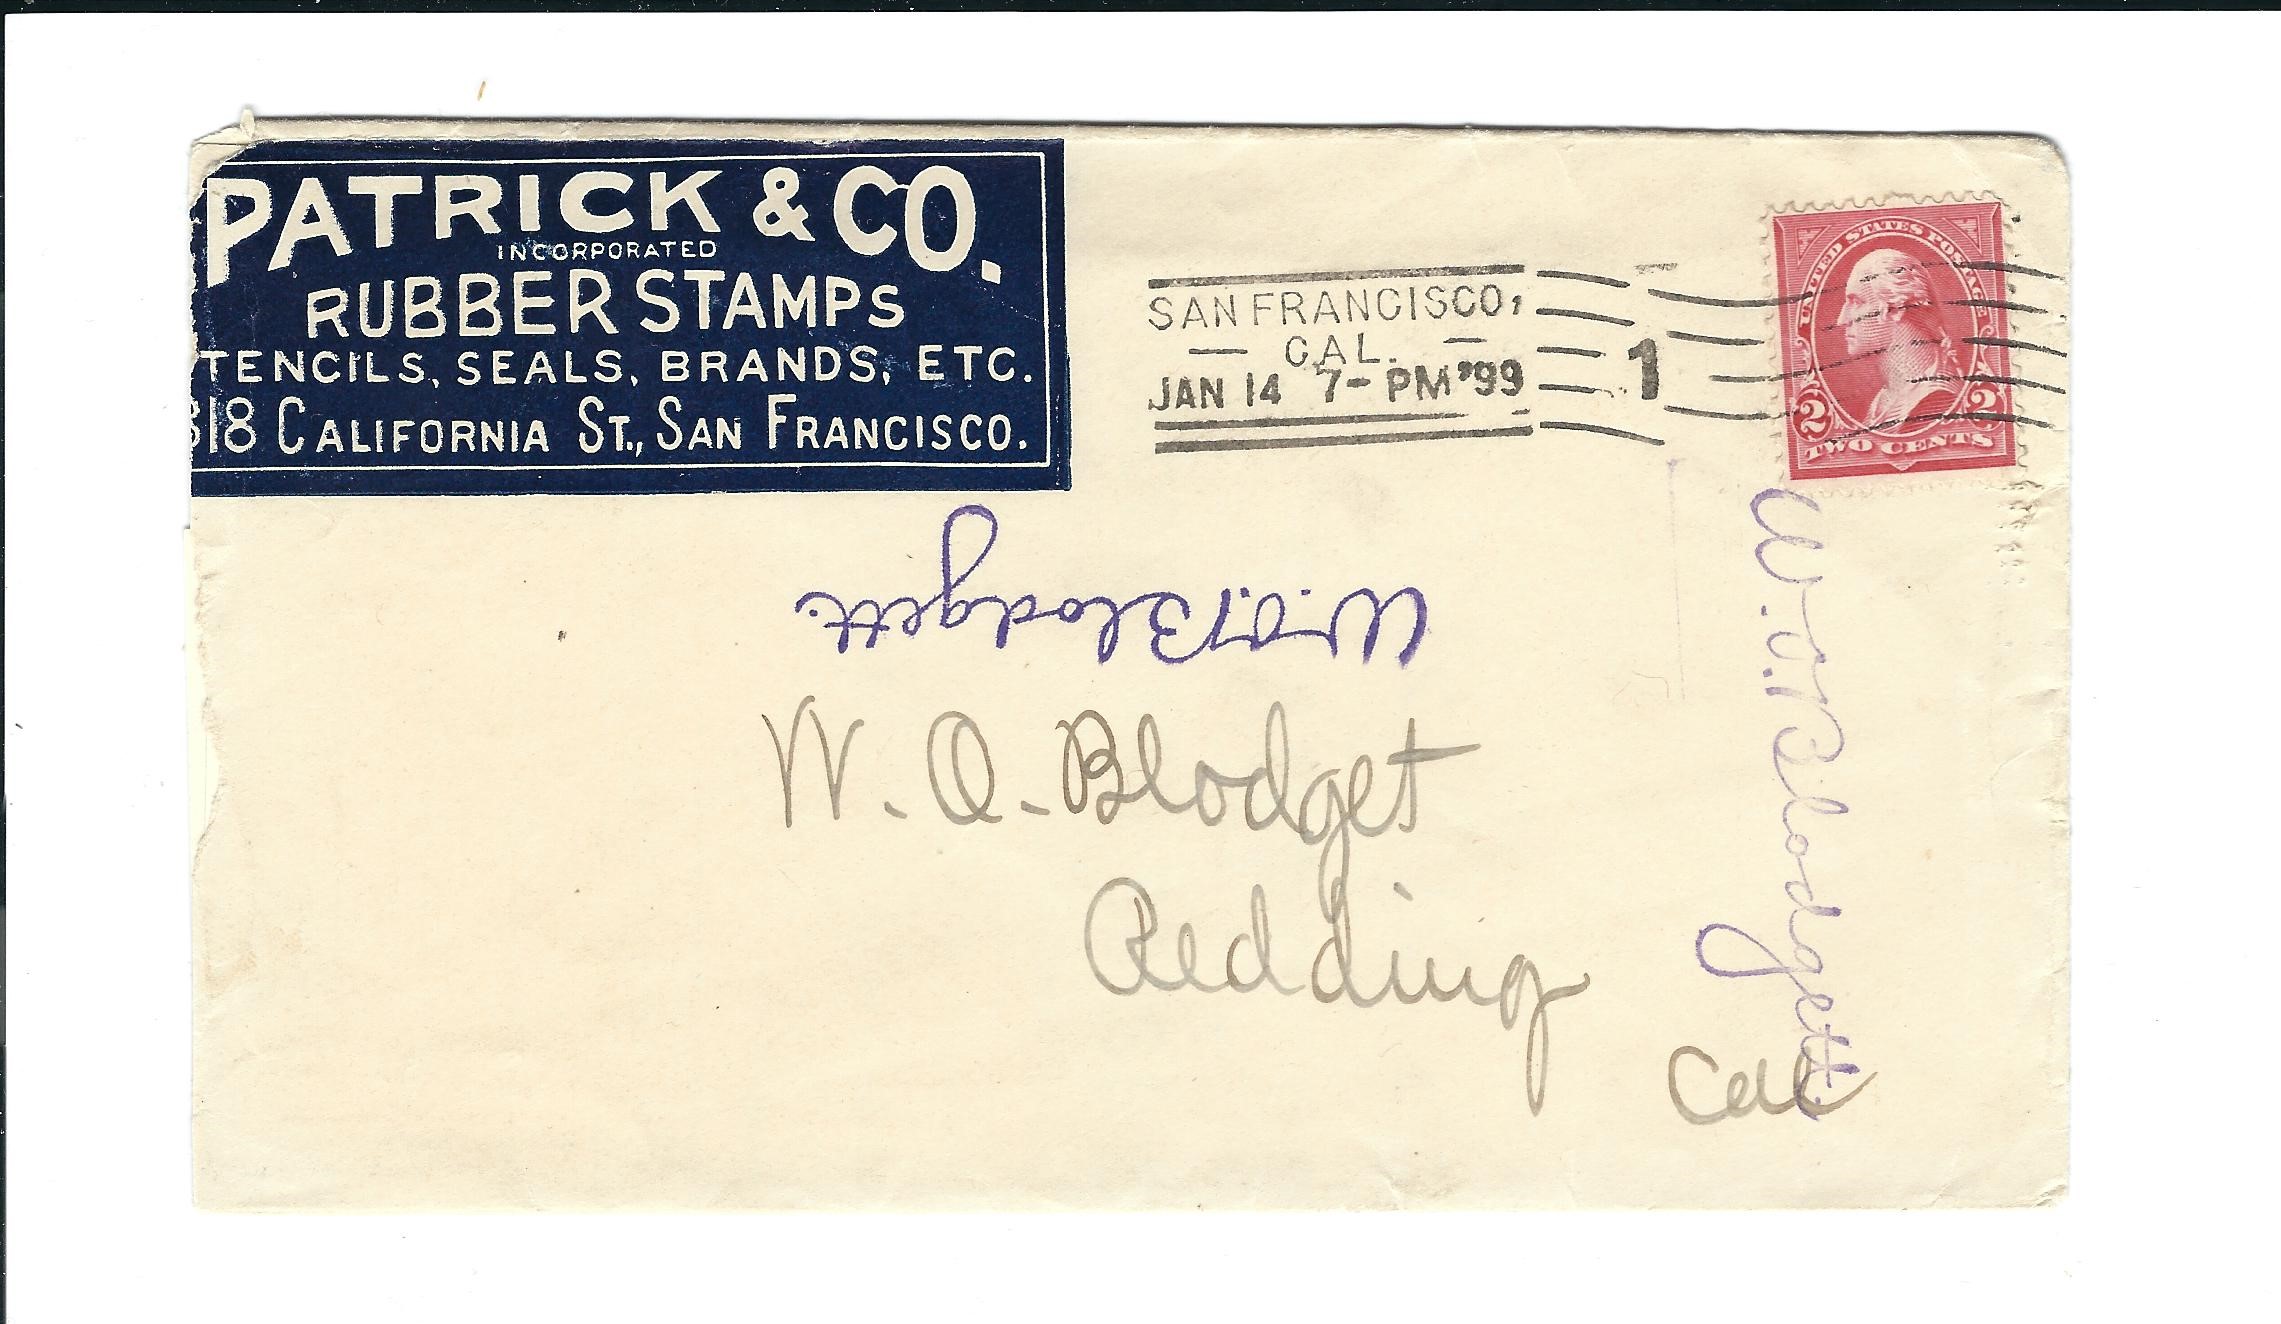 PATRICK & CO.
INCORPORATED
RUBBER STAMPS
TENCILS, SEALS, BRANDS, ETC.
318 CALIFORNIA ST., SAN FRANCISCO.
SAN FRANCISCO,
— CAL. —
JAN 14 7- PM '99
1
UNITED STATES POSTAGE
2 2
TWO CENTS
W. O. Blodgett.
W. O. Blodget
Redding
Cal
W. O. Blodgett.